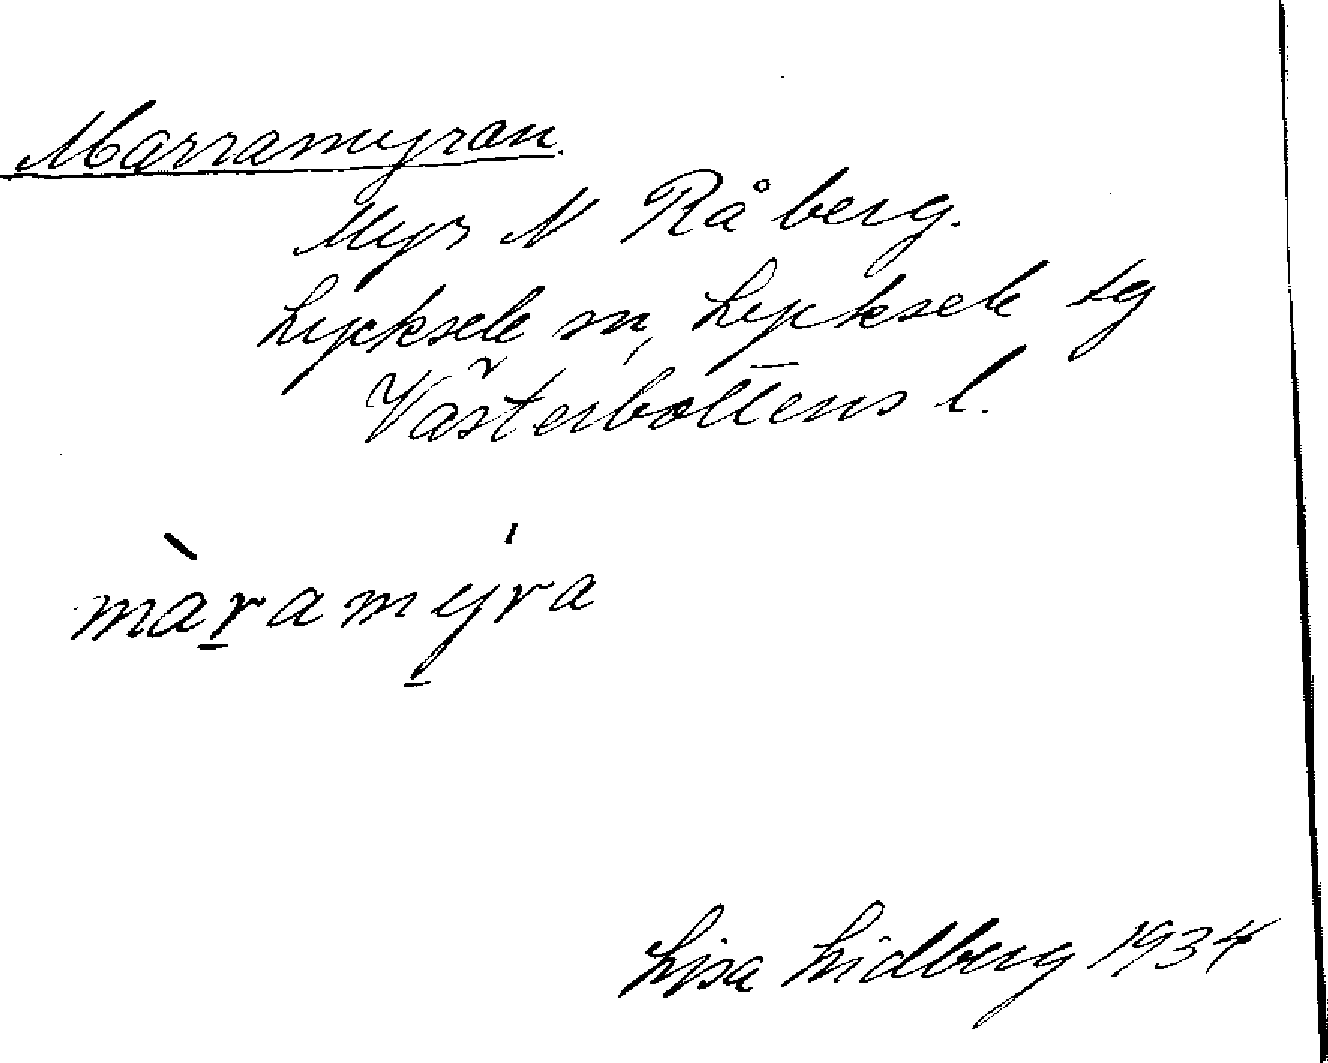 Marramyran.
Myr N Råberg.
Lycksele sn, Lycksele tg
Västerbottens l.
màr̲amý̲ra
Lisa Lidberg 1934